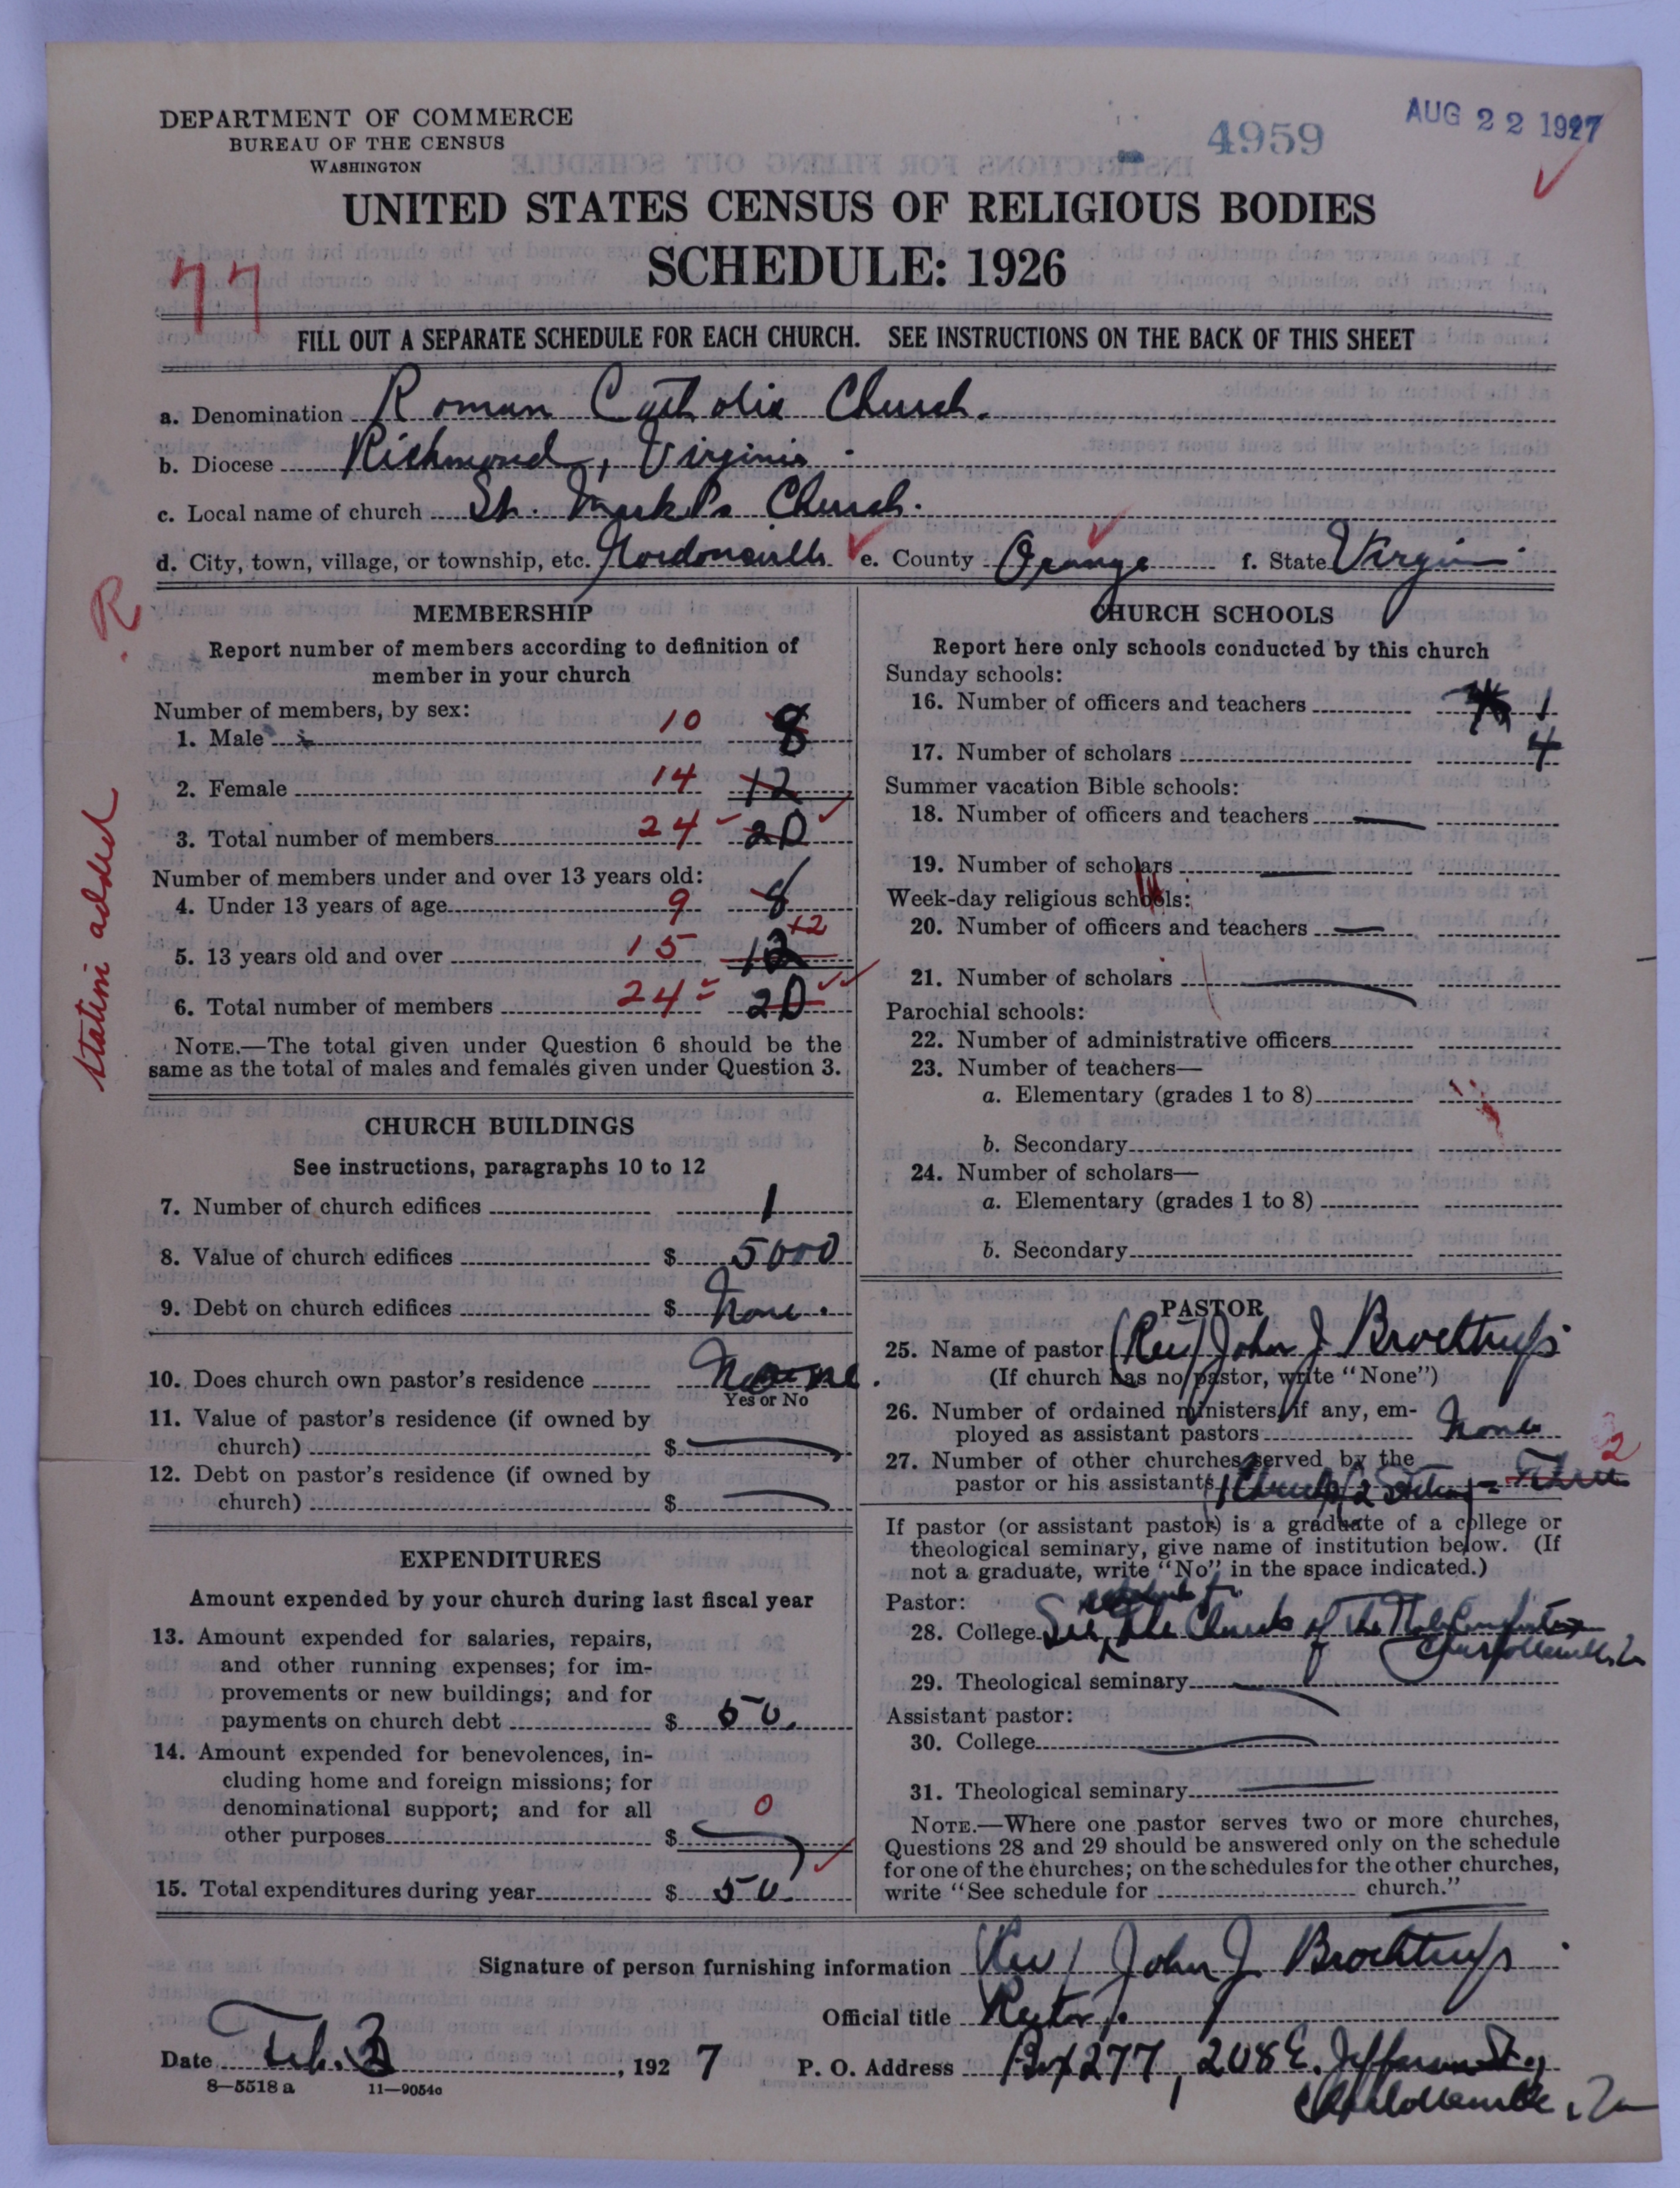 DEPARTMENT OF COMMERCE
BUREAU OF THE CENSUS
WASHINGTON
4959
AUG 22 1927
UNITED STATES CENSUS OF RELIGIOUS BODIES
SCHEDULE: 1926
77
FILL OUT A SEPARATE SCHEDULE FOR EACH CHURCH. SEE INSTRUCTIONS ON THE BACK OF THIS SHEET
a. Denomination Roman Catholic Church.
b. Diocese Richmond, Virginia.
c. Local name of church St. Mark's Church.
d. City, town, village, or township, etc. Gordonsville e. County Orange f. State Virginia
R
Station added
MEMBERSHIP
Report number of members according to definition of
member in your church
Number of members, by sex:
1. Male 10 8
2. Female 14 12
3. Total number of members 24 20
Number of members under and over 13 years old:
4. Under 13 years of age 9 8
5. 13 years old and over 15 12 12
6. Total number of members 24 20
NOTE.—The total given under Question 6 should be the
same as the total of males and females given under Question 3.
CHURCH BUILDINGS
See instructions, paragraphs 10 to 12
7. Number of church edifices 1
8. Value of church edifices $ 5000
9. Debt on church edifices $ None.
10. Does church own pastor's residence None.
Yes or No
11. Value of pastor's residence (if owned by
church) $ —
12. Debt on pastor's residence (if owned by
church) $ —
EXPENDITURES
Amount expended by your church during last fiscal year
13. Amount expended for salaries, repairs,
and other running expenses; for im-
provements or new buildings; and for
payments on church debt $ 50.
14. Amount expended for benevolences, in-
cluding home and foreign missions; for
denominational support; and for all
other purposes $ 0
15. Total expenditures during year $ 50.
CHURCH SCHOOLS
Report here only schools conducted by this church
Sunday schools:
16. Number of officers and teachers 1
17. Number of scholars 4
Summer vacation Bible schools:
18. Number of officers and teachers —
19. Number of scholars —
Week-day religious schools:
20. Number of officers and teachers —
21. Number of scholars —
Parochial schools:
22. Number of administrative officers
23. Number of teachers—
a. Elementary (grades 1 to 8)
b. Secondary
24. Number of scholars—
a. Elementary (grades 1 to 8)
b. Secondary
PASTOR
25. Name of pastor (Rev) John J Brochtrup
(If church has no pastor, write "None")
26. Number of ordained ministers, if any, em-
ployed as assistant pastors None
27. Number of other churches served by the
pastor or his assistants 1 Church 2 Stations = Three 2
If pastor (or assistant pastor) is a graduate of a college or
theological seminary, give name of institution below. (If
not a graduate, write "No" in the space indicated.)
Pastor:
28. College See schedule for the Church of the Holy Comforter
Charlottesville, Va
29. Theological seminary —
Assistant pastor:
30. College —
31. Theological seminary —
NOTE.—Where one pastor serves two or more churches,
Questions 28 and 29 should be answered only on the schedule
for one of the churches; on the schedules for the other churches,
write "See schedule for church."
Signature of person furnishing information (Rev) John J Brochtrup.
Official title Rector.
Date Feb. 3, 1927 P. O. Address Box 277, 208 E. Jefferson St.,
Charlottesville, Va
8—5518 a 11—9054a